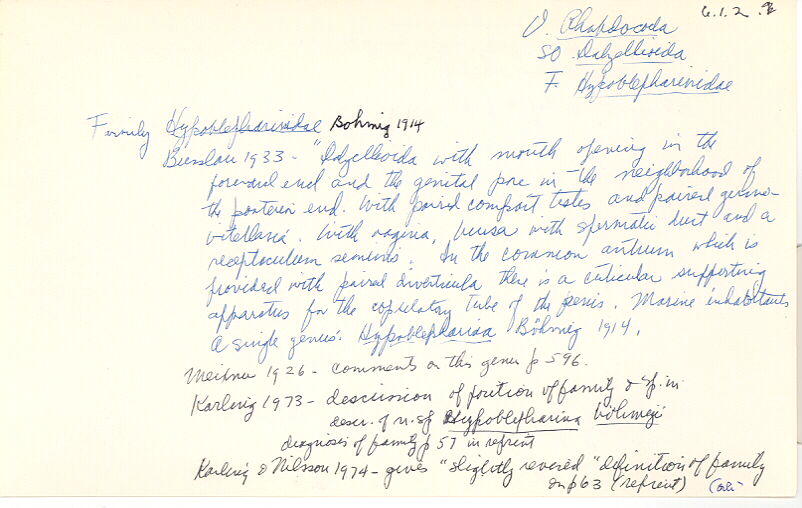 6.1.2
O. Rhabdocoela
SO Dalyellioida
F. Hypoblepharinidae
Family Hypoblepharinidae Böhmig 1914
Bresslau 1933 - "Dalyellioida with mouth opening in the
forward end and the genital pore in the neighborhood of
the posterior end. With paired compact testes and paired germo-
vitellaria. With vagina, bursa with spermatic duct and a
receptaculum seminis. In the common antrum which is
provided with paired diverticula there is a cuticular supporting
apparatus for the copulatory tube of the penis. Marine inhabitants
A single genus: Hypoblepharina Böhmig 1914.
Meixner 1926 - comments on this genus p 596.
Karling 1973 - discussion of position of family & sp. in
descr. of n. sp Hypoblepharina böhmigi
diagnosis of family p 57 in reprint
Karling & Nilsson 1974 - gives "slightly revised" definition of family
on p 63 (reprint)